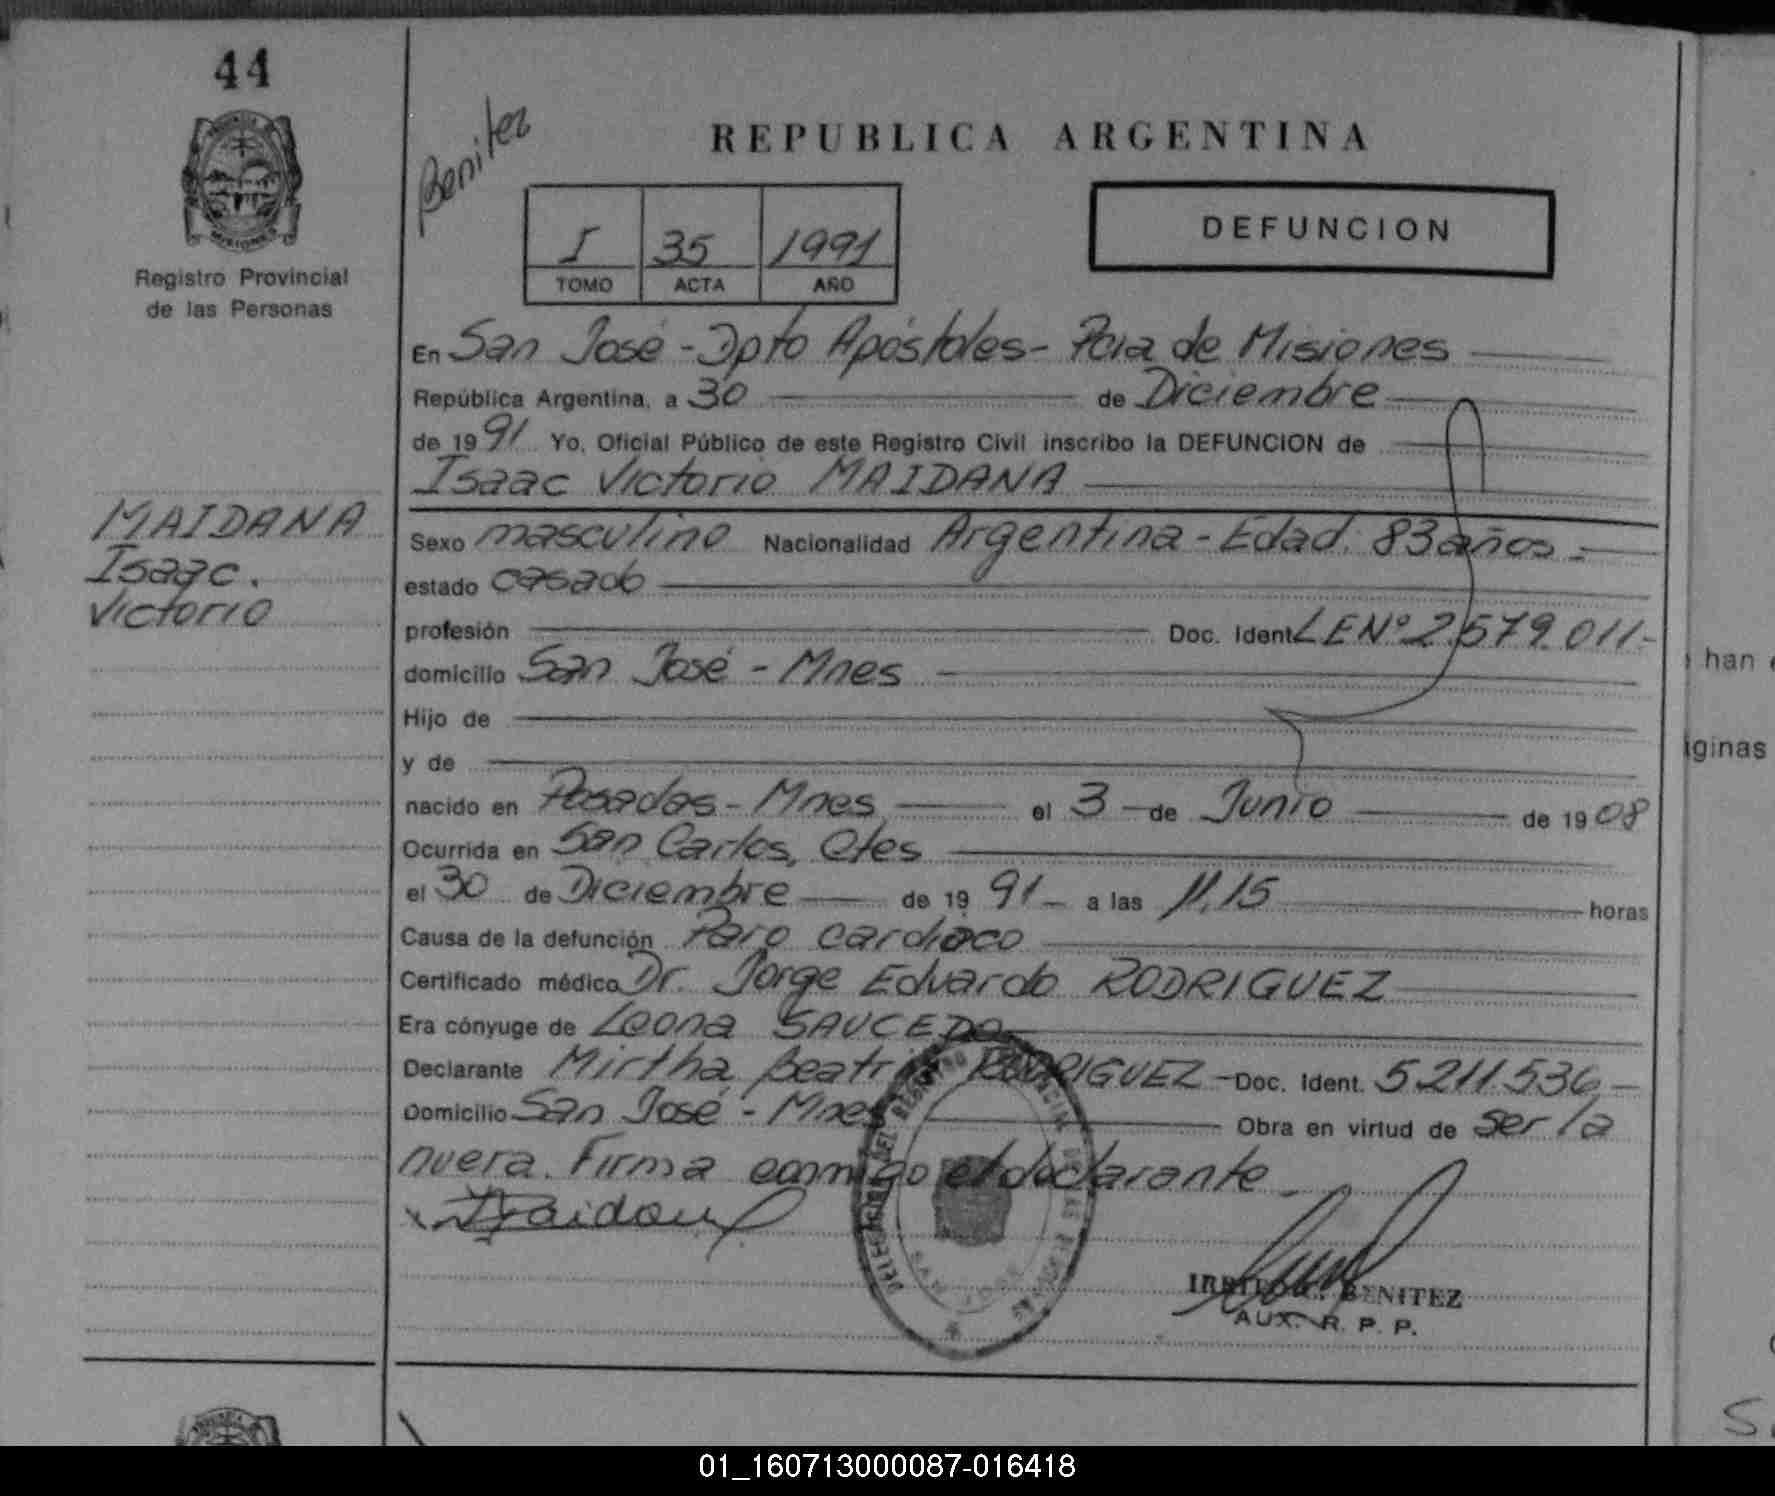 44
Registro Provincial
de las Personas
MAIDANA
Isaac.
Victorio
Benitez
REPUBLICA ARGENTINA
I 35 1991
TOMO ACTA AÑO
DEFUNCION
En San José - Dpto Apóstoles - Pcia de Misiones
República Argentina, a 30 de Diciembre
de 1991 Yo, Oficial Público de este Registro Civil inscribo la DEFUNCION de
Isaac Victorio MAIDANA
Sexo masculino Nacionalidad Argentina - Edad: 83 años -
estado casado
profesión Doc. Ident. LE Nº 2.579.011-
domicilio San José - Mnes
Hijo de
y de
nacido en Posadas - Mnes el 3 de Junio de 1908
Ocurrida en San Carlos, Ctes
el 30 de Diciembre de 1991 - a las 11,15 horas
Causa de la defunción Paro cardiaco
Certificado médico Dr. Jorge Eduardo RODRIGUEZ
Era cónyuge de Leona SAUCEDO
Declarante Mirtha Beatriz RODRIGUEZ - Doc. Ident. 5.211.536 -
Domicilio San José - Mnes Obra en virtud de ser la
nuera. Firma conmigo el declarante
DELEGACION DEL REGISTRO PROVINCIAL DE LAS PERSONAS
BENITEZ
AUX. R. P. P.
han
ginas
01_160713000087-016418